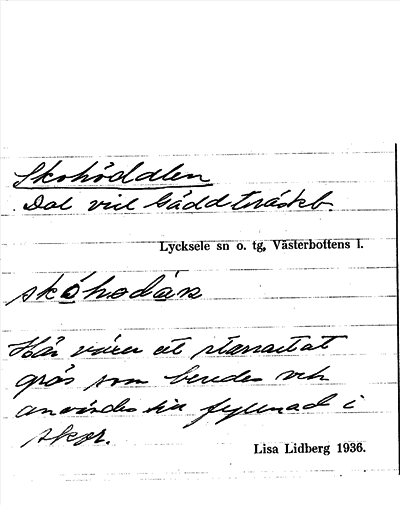 Skohöddlen
Dal vid Gäddträskb.
Lycksele sn o. tg, Västerbottens l.
skóhodán
Här växer ett starrartat
gräs som beredes och
användes till fyllnad i
skor.
Lisa Lidberg 1936.